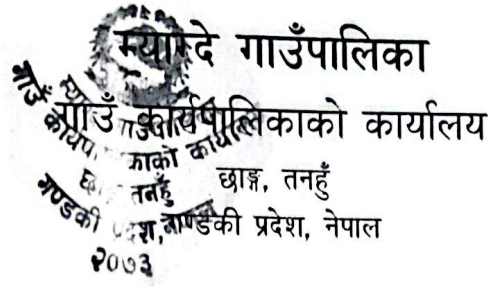 म्याग्दे गाउँपालिका
गाउँ कार्यपालिकाको कार्यालय
छाङ्ग, तनहुँ
गण्डकी प्रदेश, नेपाल
म्याग्दे गाउँपालिका
गाउँ कार्यपालिकाको कार्यालय
तनहुँ
गण्डकी प्रदेश,
२०७३